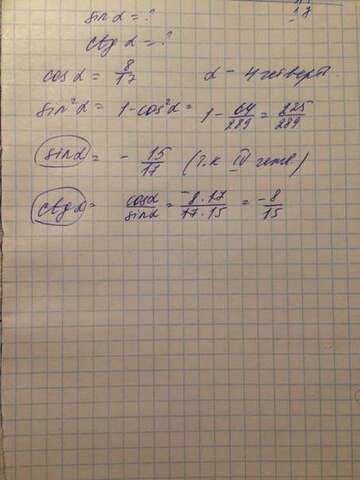 17
sin α = ?
ctg α = ?
cos α = 8/17 α - 4 четверть
sin²α = 1 - cos²α = 1 - 64/289 = 225/289
sin α = - 15/17 (т.к IV четв)
ctg α = cosα/sinα = -8·17/17·15 = -8/15